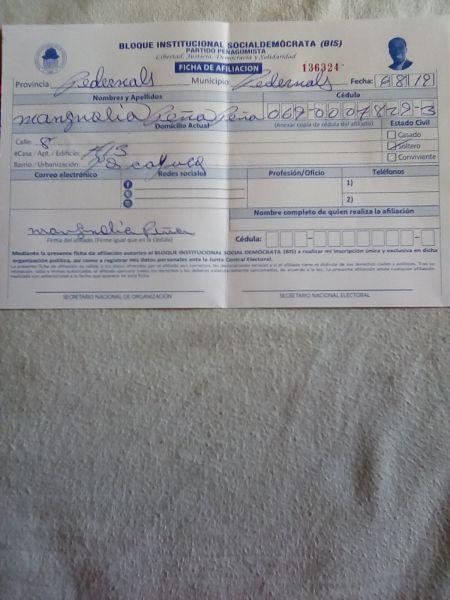 BLOQUE INSTITUCIONAL SOCIALDEMÓCRATA (BIS)
PARTIDO PEÑAGOMISTA
Libertad, Justicia, Democracia y Solidaridad
FICHA DE AFILIACION 136324
Provincia Pedernals Municipio Pedernals Fecha:
Nombres y Apellidos Cédula
mangnolia Peña Peña 069-0007829-3
Domicilio Actual (Anexar copia de cédula del afiliado) Estado Civil
Calle: 8 Casado
#Casa / Apt. / Edificio: #13 Soltero
Barrio / Urbanización: Conviviente
Correo electrónico Redes sociales Profesión/Oficio Teléfonos
1)
2)
Nombre completo de quien realiza la afiliación
mangnolia Peña
Firma del afiliado (Firme igual que en la Cédula) Cédula:
Mediante la presente ficha de afiliación autorizo al BLOQUE INSTITUCIONAL SOCIAL DEMÓCRATA (BIS) a realizar mi inscripción única y exclusiva en dicha
organización política, así como a registrar mis datos personales ante la Junta Central Electoral.
SECRETARIO NACIONAL DE ORGANIZACIÓN SECRETARIO NACIONAL ELECTORAL